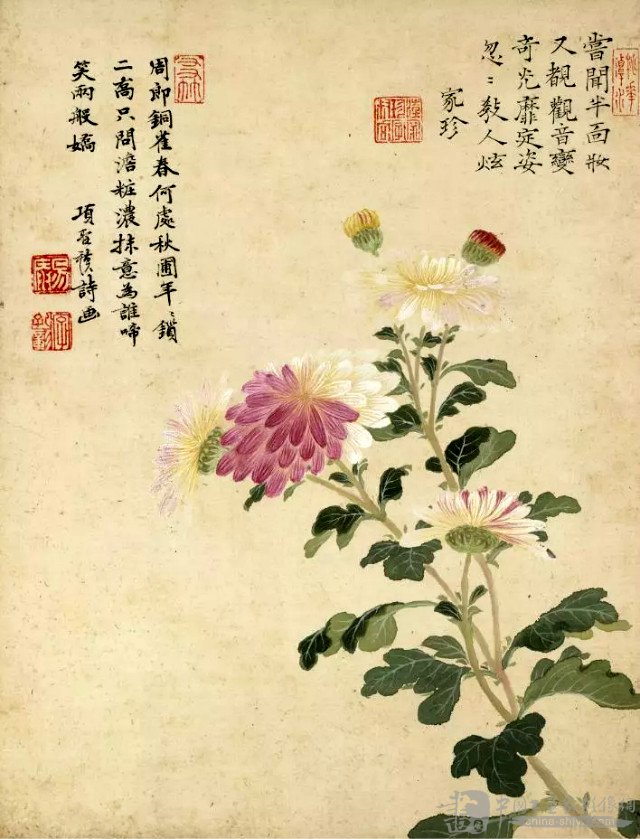 嘗聞半面妝
又覩觀音變
奇光靡定姿
忽〻教人炫
家珍
周郎銅雀春何處秋圃年〻鎖
二喬只問澹粧濃抹意為誰啼
笑兩般嬌
項聖謨詩画